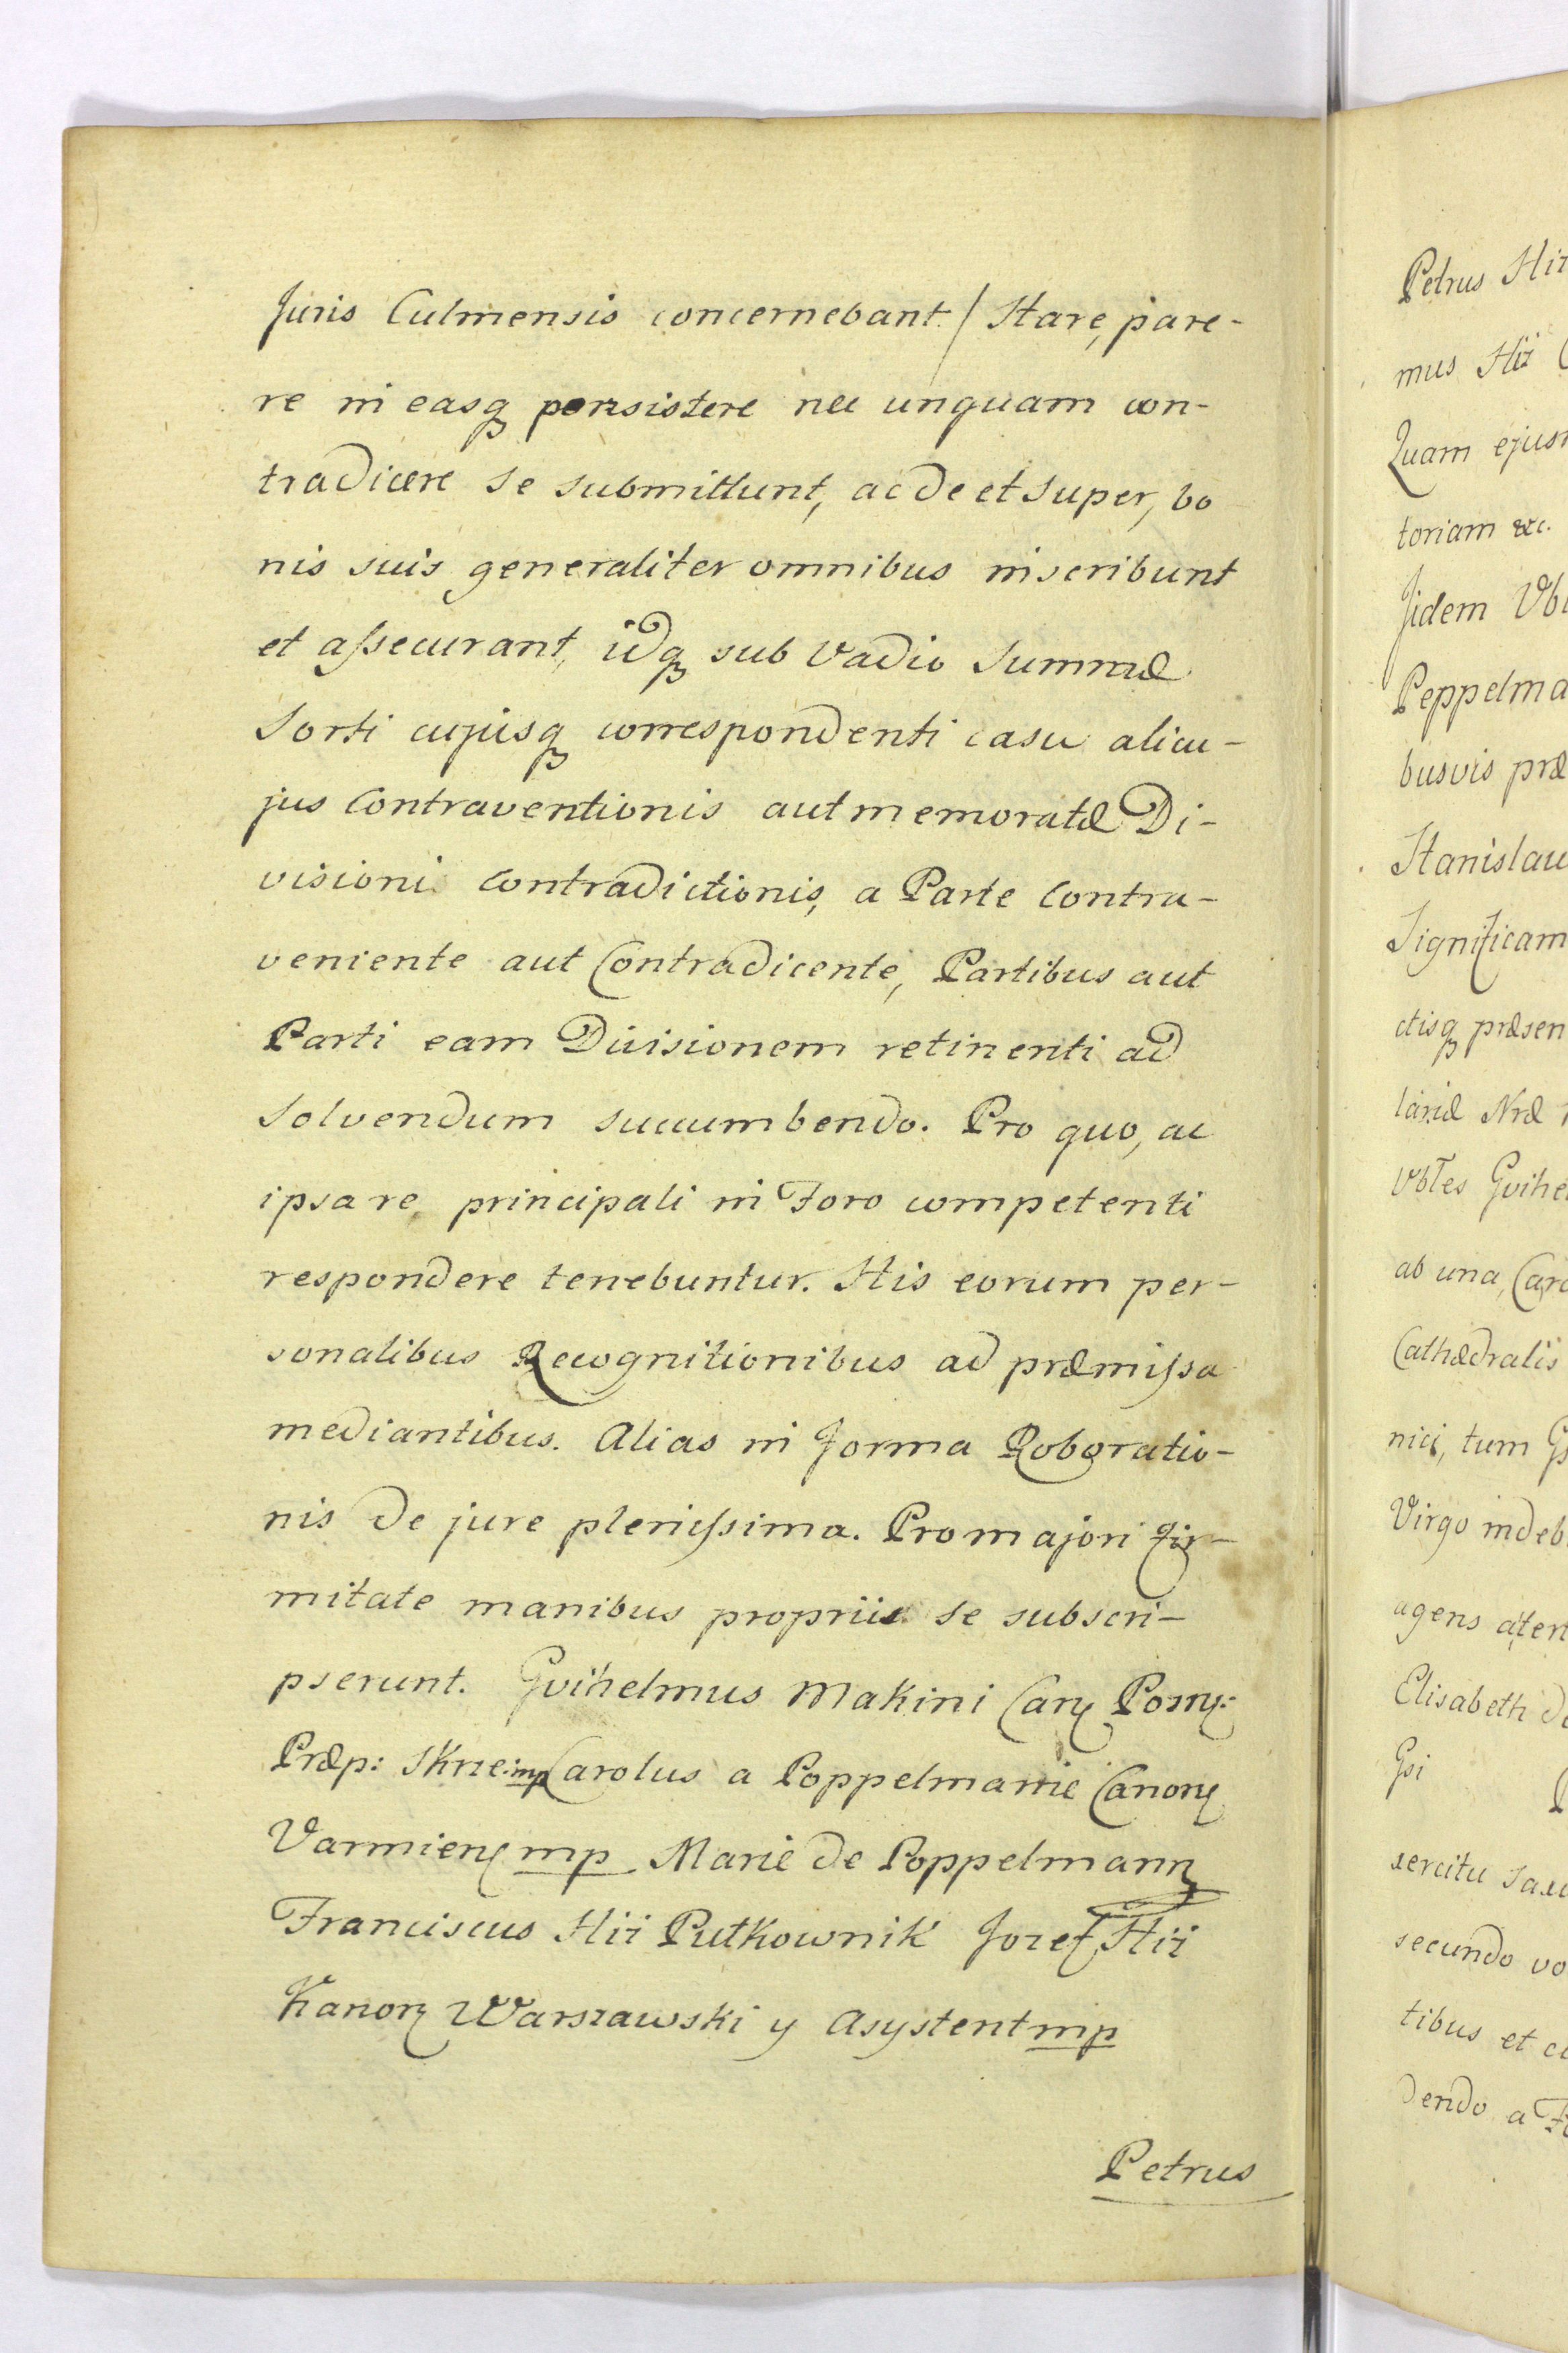 Juris Culmensis concernebant / Stare, pare-
re in easq persistere nec unquam con-
tradicere se submittunt, ac de et super, bo
nis suis generaliter omnibus inscribunt
et assecurant, idq sub vadio summæ
Sorti cujusq correspondenti casu alicu-
jus Contraventionis aut memoratæ Di-
visioni Contradictionis, a Parte Contra-
veniente aut Contradicente, Partibus aut
Parti eam Divisionem retinenti ad
Solvendum succumbendo. Pro quo, ac
ipsa re principali in Foro competenti
respondere tenebuntur. His eorum per-
sonalibus Recognitionibus ad præmissa
mediantibus. Alias in forma Roboratio-
nis de jure plenissima. Pro majori fir-
mitate manibus propriis se subscri-
pserunt. Gvihelmus Makini Can Pom:
Præp: Skrze: mp Carolus a Poppelmann Canon
Varmien mp Marie de Poppelmann
Franciscus Hiż Pułkownik Jozef Hiż
Kanon Warszawski y Asystent mp
Petrus
Petrus
mus Hiż
Quam
toriam &c.
Jidem
Peppelma
busvis præ
Stanislau
Significam
ctisq præsen
lariæ Nræ
Vbles Gvihe
ab una, Caro
Cathædralis
nici, tum
Virgo indeb
agens
Elisabeth de
Gsi
xercitu Saxo
secundo vo
tibus et
dendo a